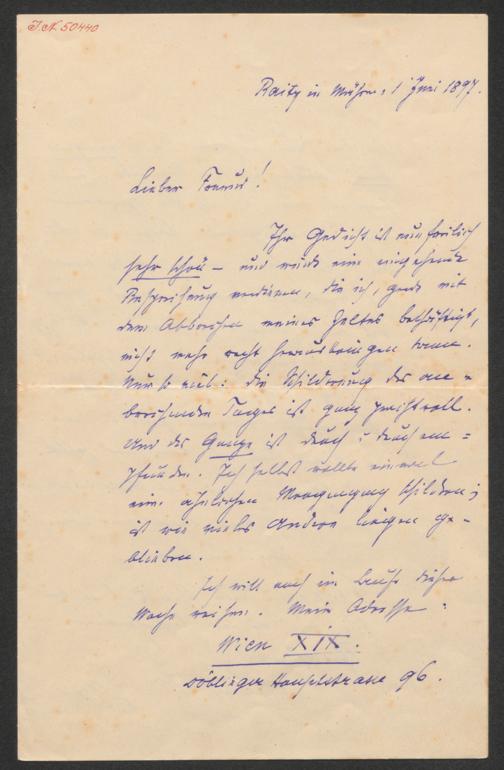 I.N. 50440
Raitz in Mähren, 1 Juni 1897.
Lieber Freund!
Ihr Gedicht ist nun freilich
sehr schön – und würde eine eingehende
Besprechung verdienen, die ich, gerade mit
dem Abbrechen meines Zeltes beschäftigt,
nicht mehr recht herausbringen kann.
Nur so viel: die Schilderung des an-
brechenden Tages ist ganz prachtvoll.
Und das Ganze ist durch u durch em-
pfunden. Ich selbst wollte einmal
einen ähnlichen Morgengang schildern;
ist wie vieles Andere liegen ge-
blieben.
Ich will noch im Laufe dieser
Woche reisen. Meine Adresse:
Wien XIX.
Döblinger Hauptstrasse 96.